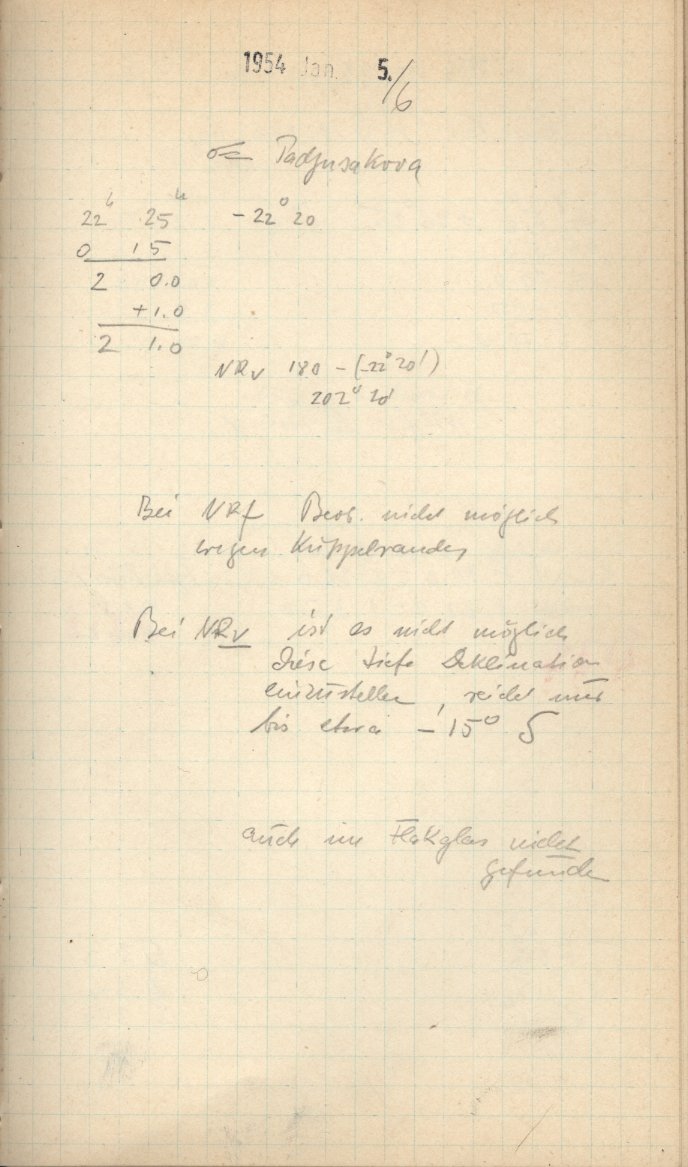 1954 Jan. 5./6
☄ Padjusakova
22ʰ 25ᵐ -22° 20
0 15
2 0.0
+1.0
2 1.0
NRv 180 - (-22° 20')
202° 20'
Bei NRf Beob. nicht möglich
wegen Kuppelrandes
Bei NRv ist es nicht möglich
diese tiefe Deklination
einzustellen, reicht nur
bis etwa -15° δ
auch im Flakglas nicht
gefunden